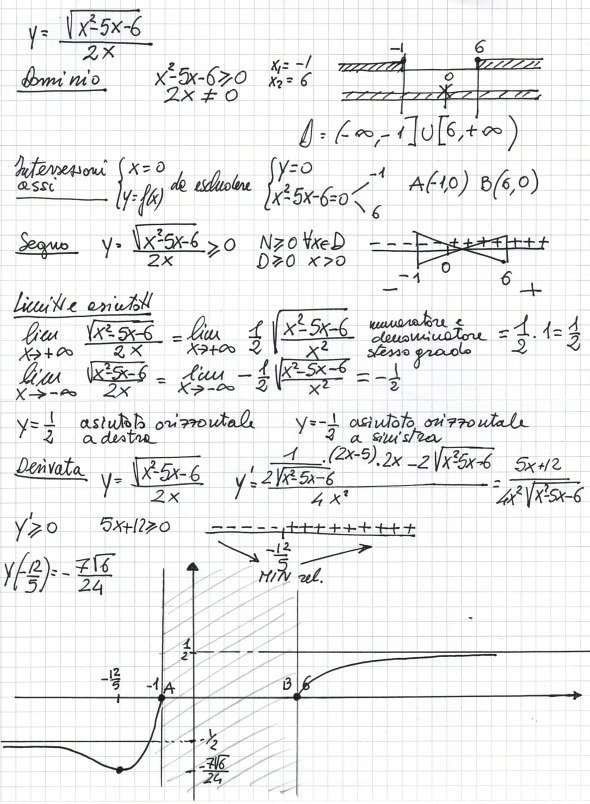 y = √(x²-5x-6) / 2x
Dominio x²-5x-6 ⩾ 0 x₁ = -1
2x ≠ 0 x₂ = 6
-1 6
0
D = (-∞, -1] ∪ [6, +∞)
Intersezioni assi { x=0 y=f(x) da escludere { y=0 x²-5x-6=0 -1 6 A(-1,0) B(6,0)
Segno y = √(x²-5x-6) / 2x ⩾ 0 N⩾0 ∀x∈D
D⩾0 x>0
- - - - + + + + + + + +
-1 0 6
- +
Limiti e asintoti
lim x→+∞ √(x²-5x-6) / 2x = lim x→+∞ 1/2 √((x²-5x-6)/x²) numeratore e denominatore stesso grado = 1/2 · 1 = 1/2
lim x→-∞ √(x²-5x-6) / 2x = lim x→-∞ - 1/2 √((x²-5x-6)/x²) = -1/2
y = 1/2 asintoto orizzontale a destra y = -1/2 asintoto orizzontale a sinistra
Derivata y = √(x²-5x-6) / 2x y' = (1/(2√(x²-5x-6)) · (2x-5) · 2x - 2√(x²-5x-6)) / 4x² = (5x+12) / (4x²√(x²-5x-6))
y' ⩾ 0 5x+12 ⩾ 0 - - - - - + + + + + + + +
-12/5
MIN rel.
y(-12/5) = - 7√6 / 24
1/2
-12/5 -1 A B 6
-1/2
-7√6/24